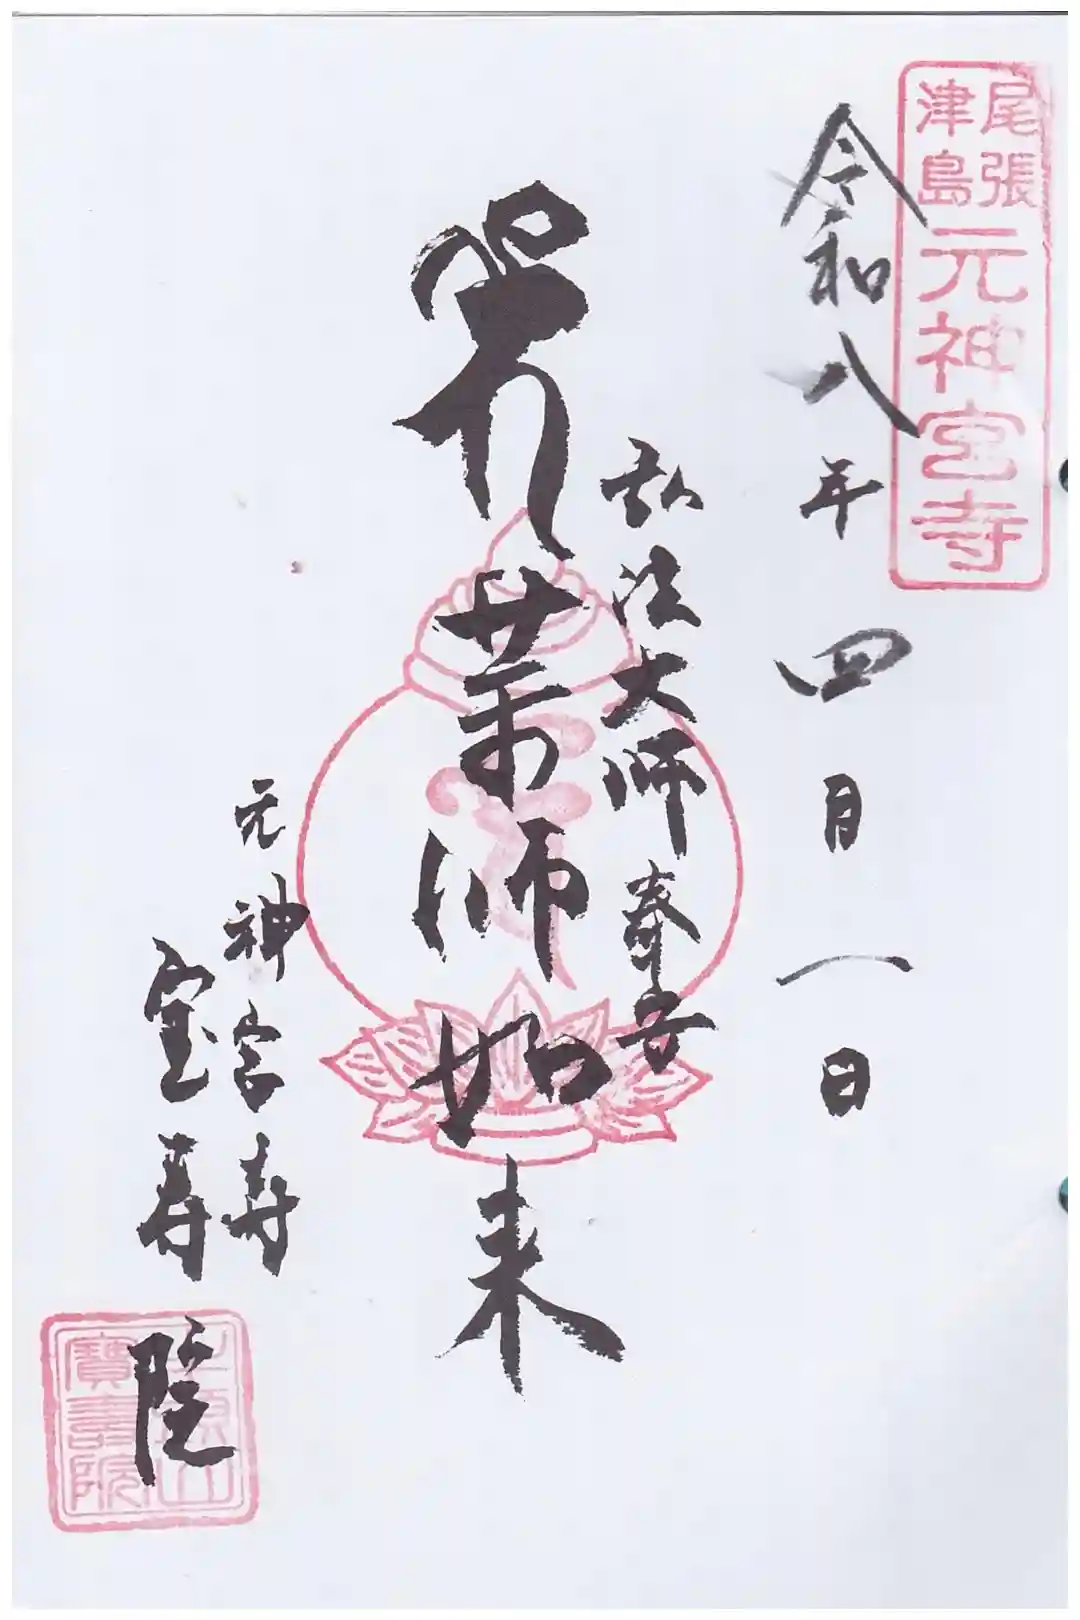 尾張
津島
元神宮寺
令和八年四月一日
弘法大師奉安
薬師如来
元神宮寺
宝寿院
牛頭山
寳壽院